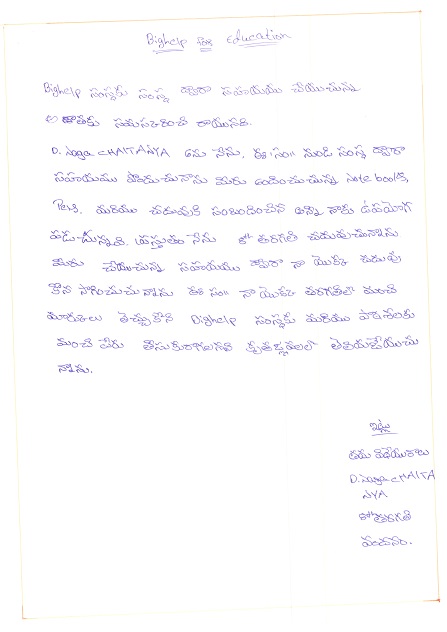 Bighelp for Education
Bighelp సంస్థకు సంస్థ ద్వారా సహాయము చేయుచున్న
దాతకు నమస్కరించి రాయునది.
D. Naga CHAITANYA అను నేను, ఈ సం॥ నుండి సంస్థ ద్వారా
సహాయము పొందుచున్నాను మీరు అందించుచున్న Note books,
Pens, మరియు చదువుకి సంబంధించిన అన్ని నాకు ఉపయోగ
పడుచున్నవి. ప్రస్తుతం నేను తరగతి చదువుచున్నాను
మీరు చేయుచున్న సహాయము ద్వారా నా యొక్క చదువు
కొన సాగించుచున్నాను ఈ సం॥ నా యొక్క తరగతిలో మంచి
మార్కులు తెచ్చుకొని Bighelp సంస్థకు మరియు పాఠశాలకు
మంచి పేరు తీసుకురాగలనని కృతజ్ఞతలతో తెలియజేయుచు
న్నాను.
ఇట్లు
తమ విధేయురాలు
D. Naga CHAITA
NYA
తరగతి